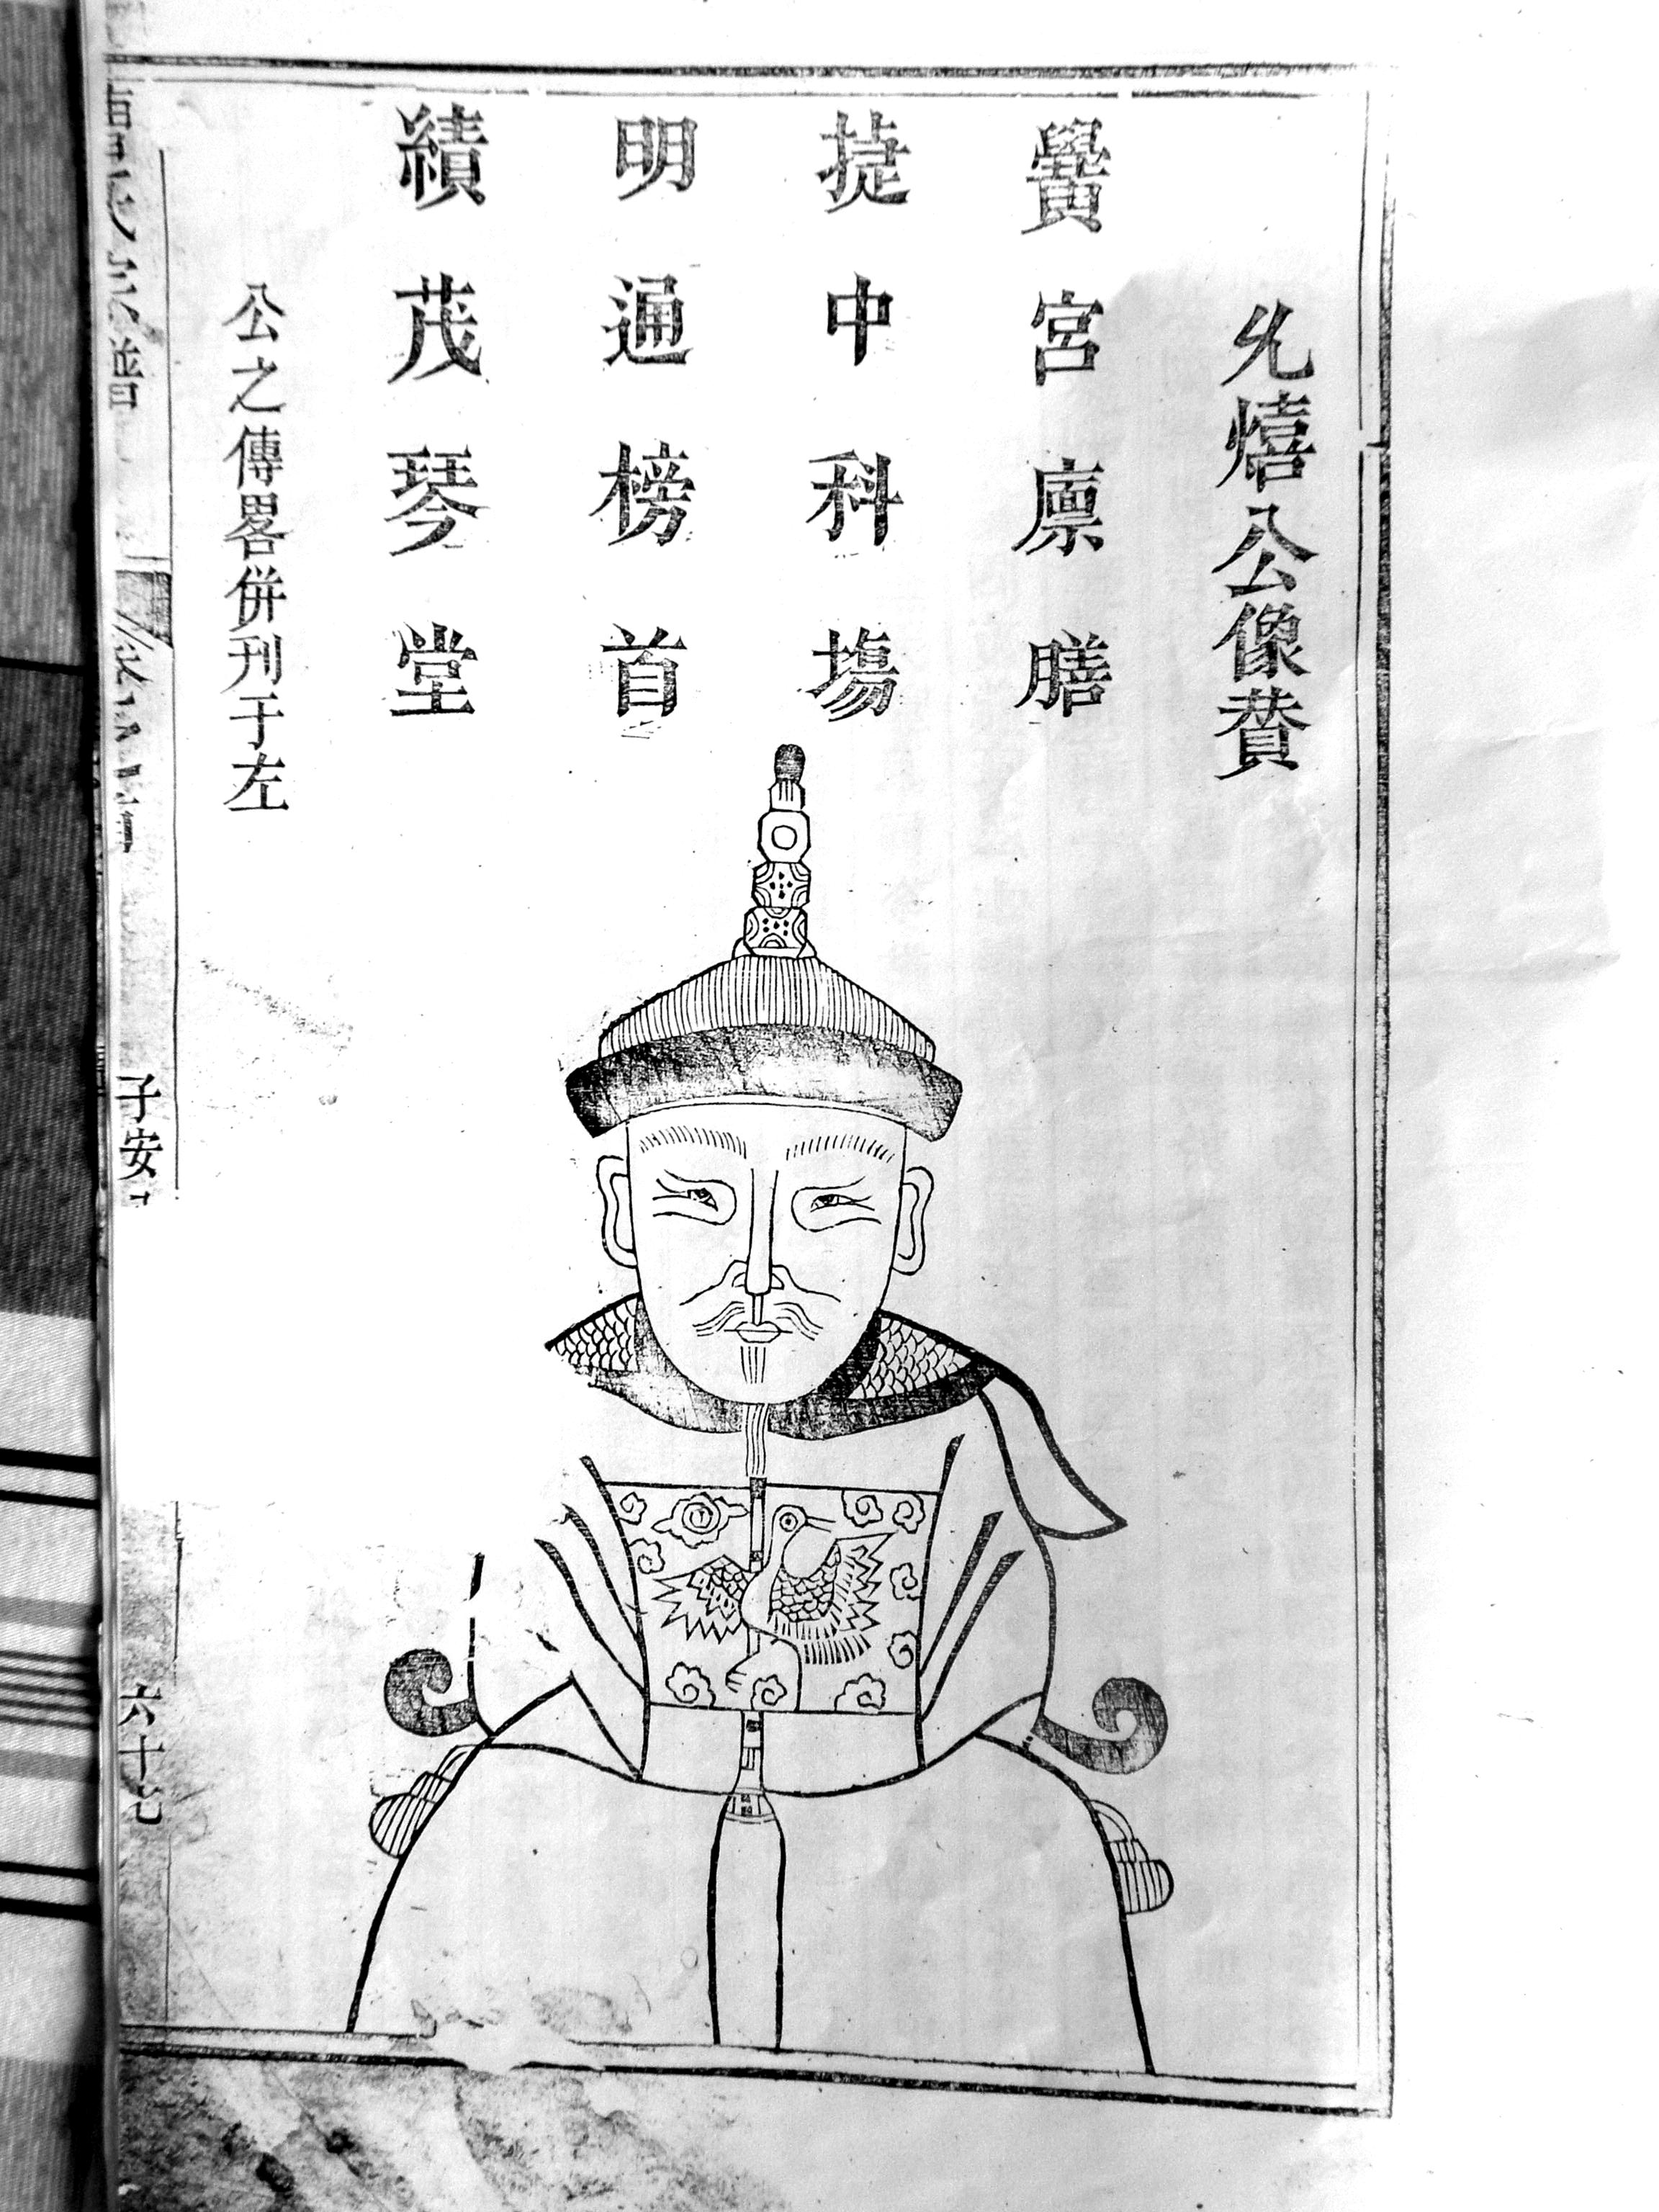 熺公像賛
黌宮廪膳
捷中科塲
明通榜首
績茂琴堂
公之傳畧併刊于左
譜
子安
六十